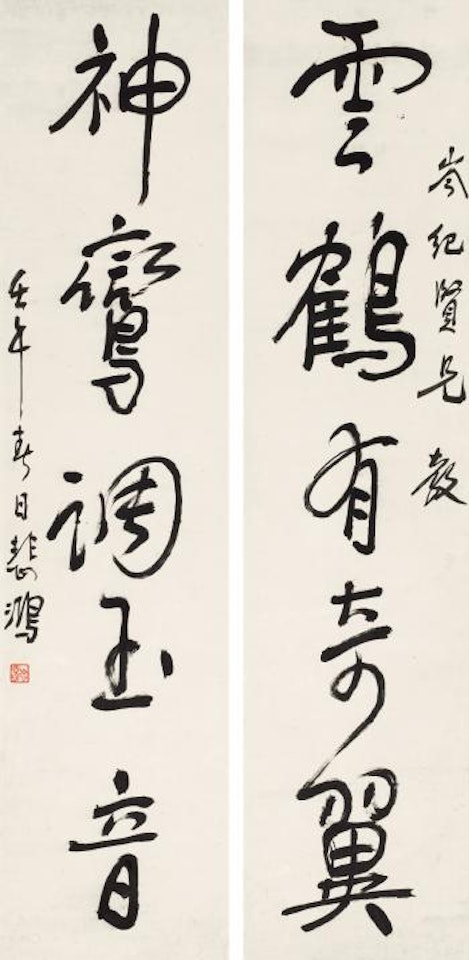 岑紀賢兄教
雲鶴有奇翼
神鸞調玉音
壬午春日悲鴻